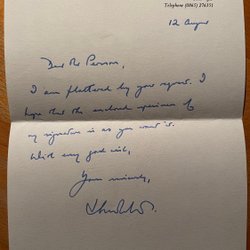 Telephone (0865) 27635
12 August
Dear Mr Pearson,
I am flattered by your request. I
hope that the enclosed specimen of
my signature is as you want it.
With every good wish,
Yours sincerely,